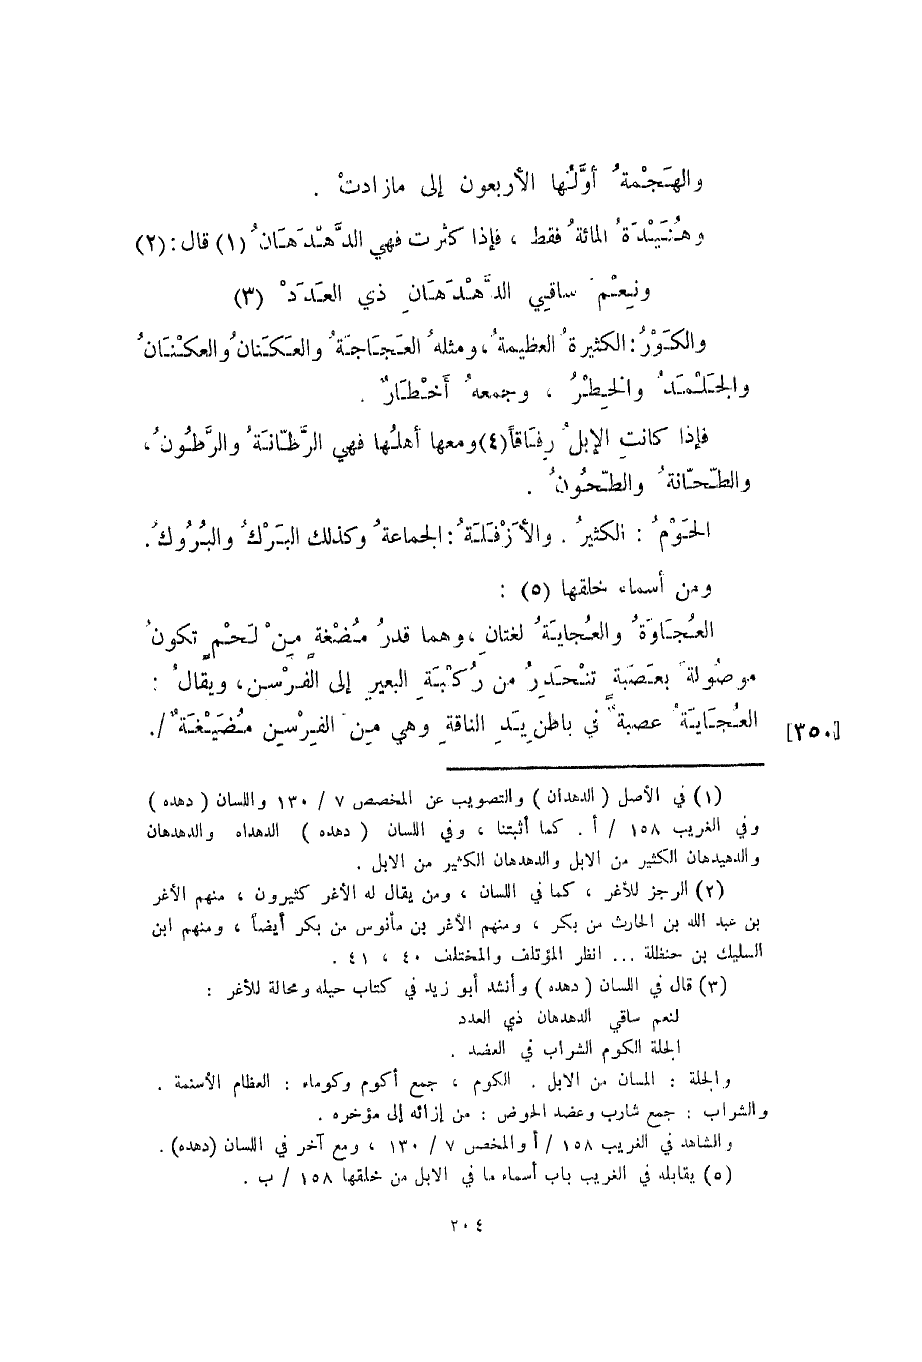 والهَجْمةُ أوَّلُها الأربعون إلى مازادتْ .
وهُنَيْدَةُ المائةُ فقط ، فإذا كثرت فهي الدَّهْدَهَانُ (١) قال : (٢)
ونِعْمَ ساقِي الدَّهْدَهَانِ ذي العَدَدْ (٣)
والكَوْرُ : الكثيرةُ العظيمةُ ، ومثلهُ العَجَاجَةُ والعَكَنانُ والعكْنَانُ
والجَلْمَدُ والخِطْرُ ، وجمعهُ أَخْطَارٌ .
فإذا كانتِ الإبلُ رِفَاقاً (٤) ومعها أهلُها فهي الرَّطَّانَةُ والرَّطُونُ ،
والطَّحَّانةُ والطَّحُونُ .
الحَوْمُ : الكثيرُ . والأَزْفَلَةُ : الجماعةُ وكذلك البَرْكُ والبُرُوكُ .
ومن أسماء خلقها (٥) :
العُجَاوَةُ والعُجايَةُ لغتانِ ، وهما قدرُ مُضْغةٍ مِنْ لَحْمٍ تكونُ
موصُولةً بعَصَبَةٍ تنْحَدِرُ من رُكْبَةِ البعيرِ إلى الفِرْسنِ ، ويقالُ :
العُجَايَةُ عصبةٌ في باطنِ يَدِ الناقةِ وهي مِنَ الفِرْسِنِ مُضَيْغَةٌ / .
[٣٥٠]
(١) في الأصل ( الدهدان ) والتصويب عن المخصص ٧ / ١٣٠ واللسان ( دهده )
وفي الغريب ١٥٨ / أ . كما أثبتنا ، وفي اللسان ( دهده ) الدهداه والدهدهان
والدهيدهان الكثير من الابل والدهدهان الكثير من الابل .
(٢) الرجز للأغر ، كما في اللسان ، ومن يقال له الأغر كثيرون ، منهم الأغر
بن عبد الله بن الحارث من بكر ، ومنهم الأغر بن مأنوس من بكر أيضاً ، ومنهم ابن
السليك بن حنظلة ... انظر المؤتلف والمختلف ٤٠ ، ٤١ .
(٣) قال في اللسان ( دهده ) وأنشد أبو زيد في كتاب حيله ومحالة للأغر :
لنعم ساقي الدهدهان ذي العدد
الجلة الكوم الشراب في العضد .
والجلة : المسان من الابل . الكوم ، جمع أكوم وكوماء : العظام الأسنمة .
والشراب : جمع شارب وعضد الحوض : من إزائه إلى مؤخره .
والشاهد في الغريب ١٥٨ / أ والمخصص ٧ / ١٣٠ ، ومع آخر في اللسان (دهده) .
(٥) يقابله في الغريب باب أسماء ما في الابل من خلقها ١٥٨ / ب .
٢٠٤